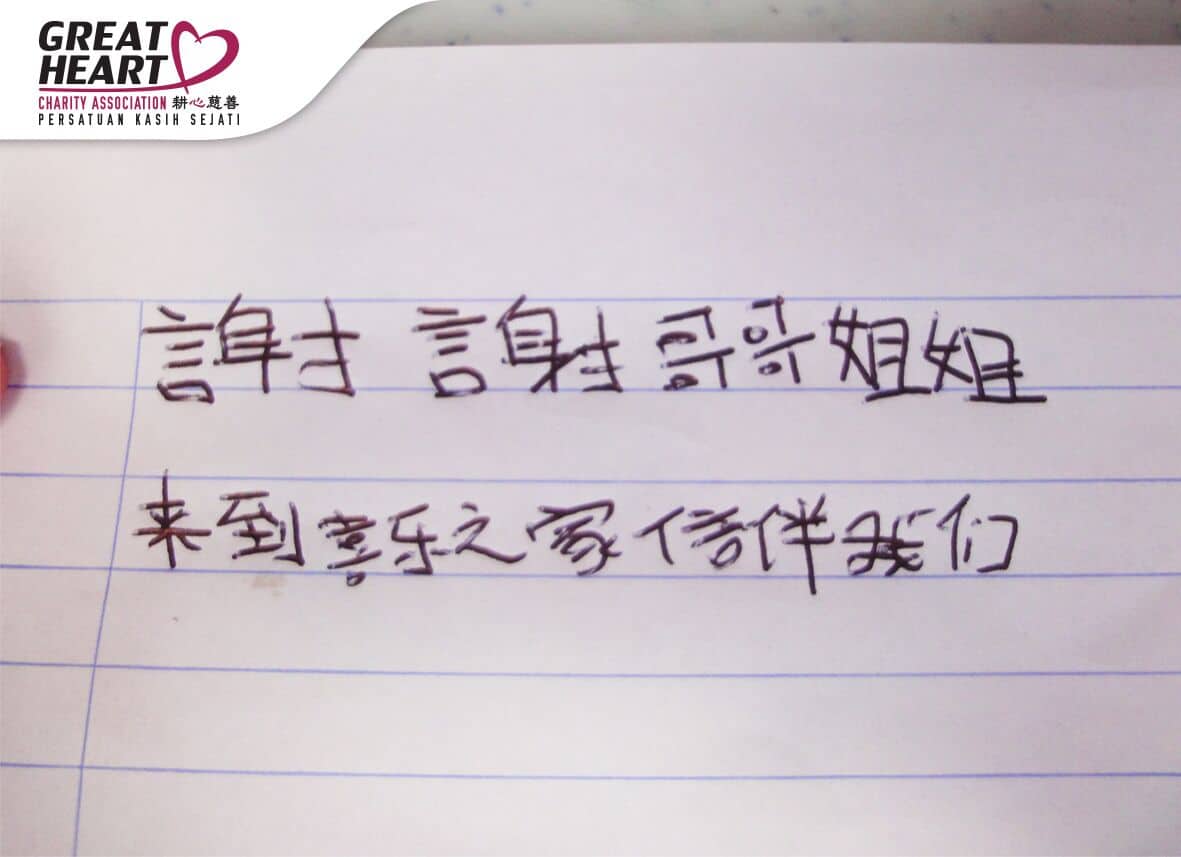 GREAT
HEART
CHARITY ASSOCIATION 耕心慈善
PERSATUAN KASIH SEJATI
謝謝哥哥姐姐
来到喜乐之家倍伴我们